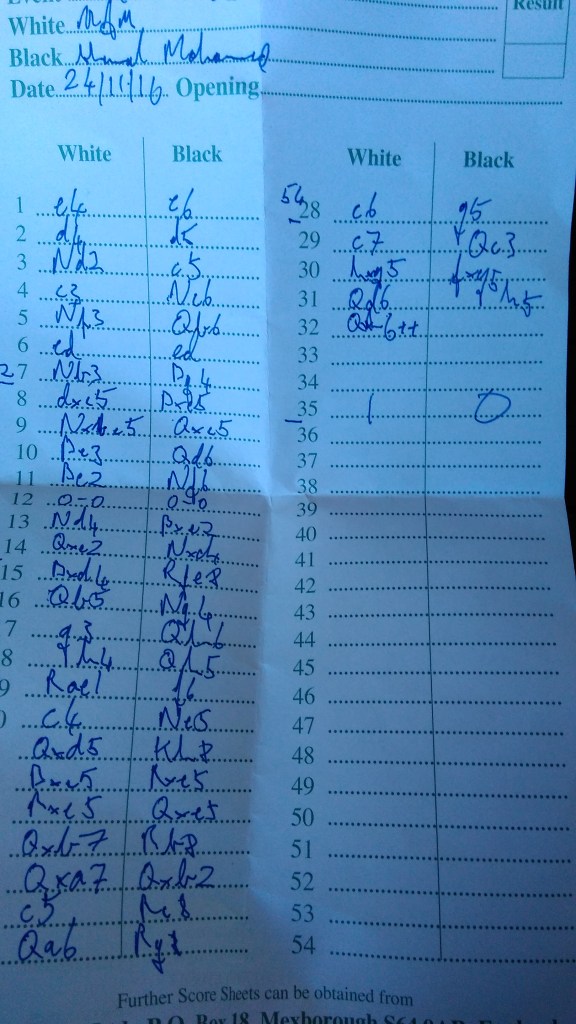 Result
White M&M
Black Mohamed
Date 24/11/16 Opening
White Black
1 e4 e6
2 d4 d5
3 Nd2 c5
4 c3 Nc6
5 Nf3 Qb6
6 ed ed
7 Nb3 Bg4
8 dxc5 Bxc5
9 Nxc5 Qxc5
10 Be3 Qd6
11 Be2 Nf6
12 0-0 0-0
13 Nd4 Bxe2
14 Qxe2 Nxd4
15 Bxd4 Rfe8
16 Qb5 Ng4
7 g3 Qh6
8 h4 Qh5
9 Rae1 f6
c4 Ne5
Qxd5 Kh8
Bxe5 Rxe5
Rxe5 Qxe5
Qxb7 Rb8
Qxa7 Qxb2
c5 Rc8
Qa6 Rg8
White Black
54
28 c6 g5
29 c7 Qc3
30 hxg5 fxg5
31 Qd6 h5
32 Qh6++
33
34
35 1 0
36
37
38
39
40
41
42
43
44
45
46
47
48
49
50
51
52
53
54
Further Score Sheets can be obtained from
P.O. Box 18, Mexborough S64